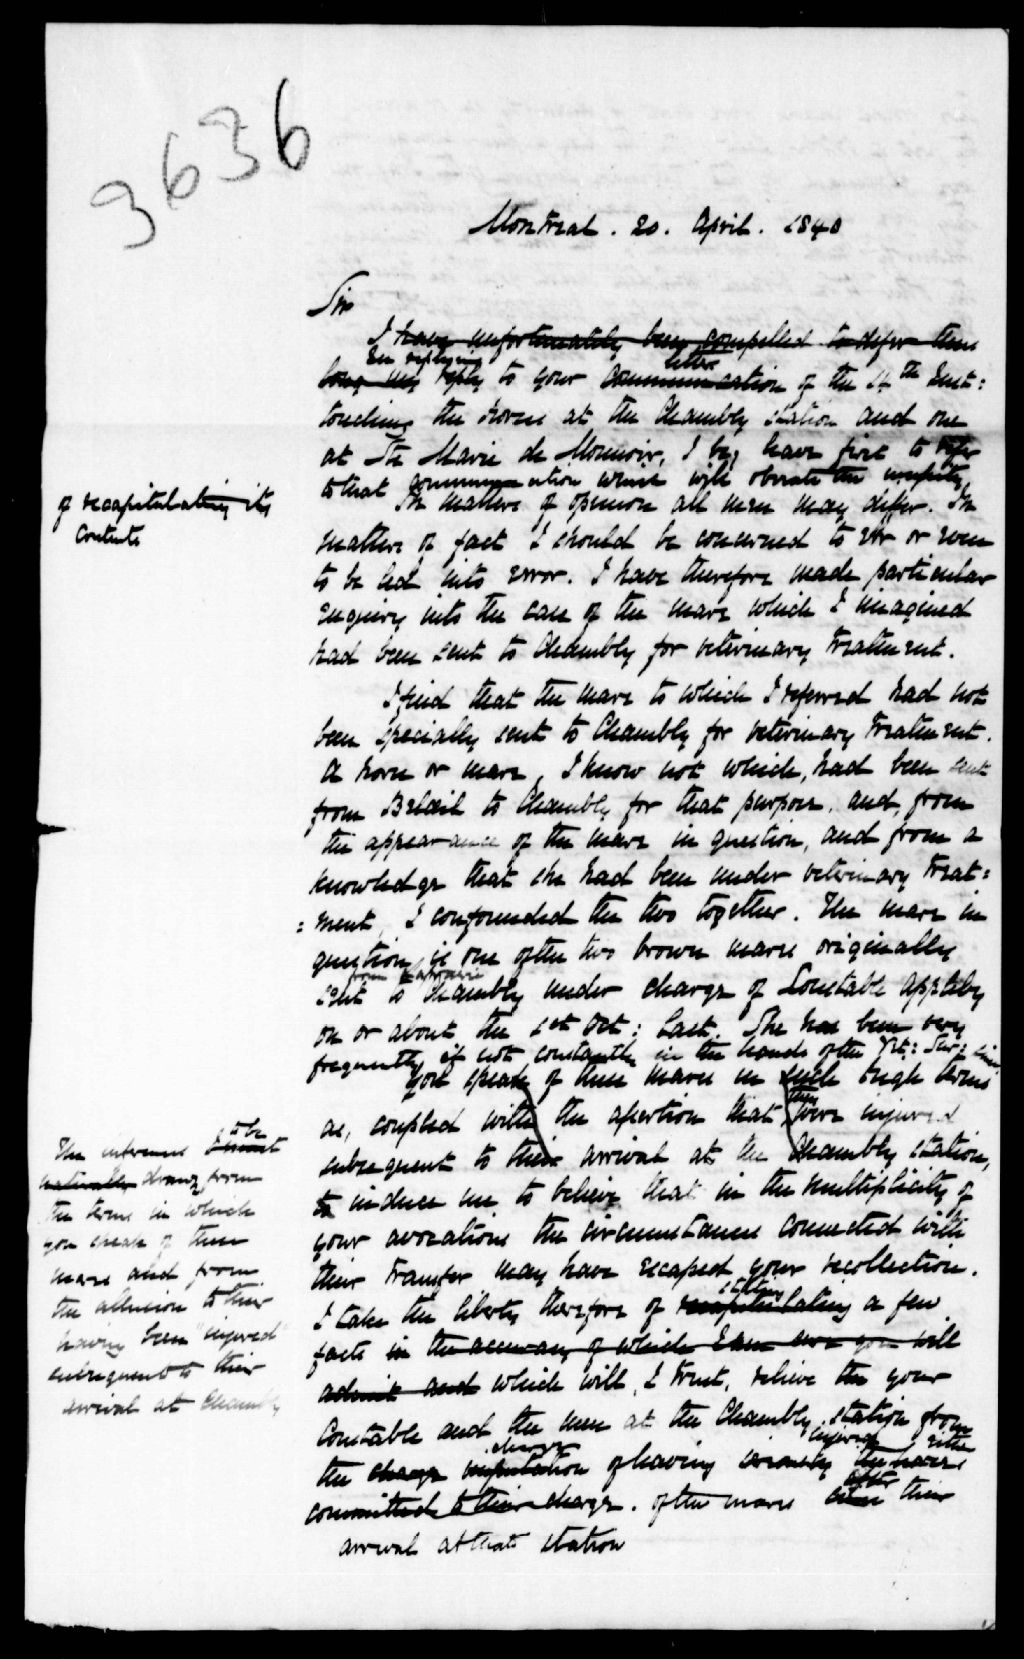 3636
Montreal. 20. April. 1840
Sir
I have unfortunately been compelled to defer thus
In replying letter
long my reply to your communication of the 14th Inst:
touching the horses at the Chambly station and one
at Ste Marie de Monnoir, I beg leave first to refer
to that communication which will obviate the necessity
of recapitulating its
contents
In matters of opinion all men may differ. In
matters of fact I should be concerned to err or even
to be led into error. I have therefore made particular
enquiry into the case of the mare which I imagined
had been sent to Chambly for veterinary treatment.
I find that the mare to which I referred had not
been specially sent to Chambly for veterinary treatment.
A horse or mare, I know not which, had been sent
from to Chambly for that purpose, and, from
the appearance of the mare in question, and from a
knowledge that she had been under veterinary treat=
=ment, I confounded the two together. The mare in
question is one of the two brown mares originally
from
sent to Chambly under charge of Constable Appleby
on or about the 1st Oct: last. She has been very
frequently if not constantly in the hands of the Vet: Sur: since
You speak of these mares in such high terms
as, coupled with the assertion that they were injured
subsequent to their arrival at the Chambly station,
to induce me to believe that in the multiplicity of
your avocations the circumstances connected with
their transfer may have escaped your recollection.
The inference to be
almost
naturally drawn from
the terms in which
you speak of these
mares and from
the allusion to their
having been "injured"
subsequent to their
arrival at Chambly
stating
I take the liberty therefore of recapitulating a few
facts in the accuracy of which I am sure you will
admit and which will, I trust, relieve the your
Constable and the men at the Chambly station from
charge injured either
the charge imputation of having seriously the mares
committed to their charge. of the mares after their
arrival at that station